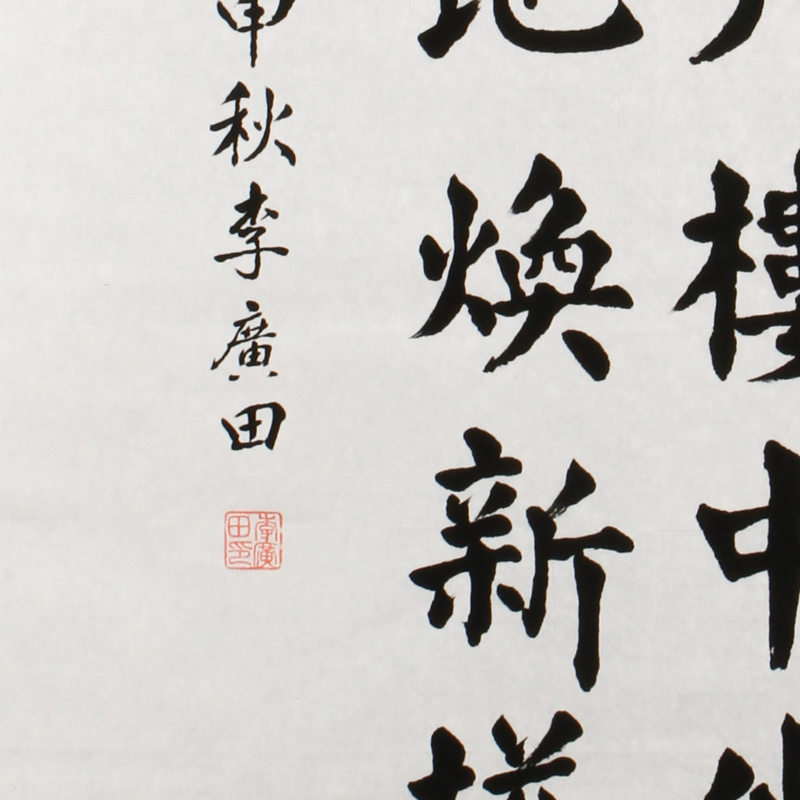 樓中
煥新
申秋李廣田
李廣田印